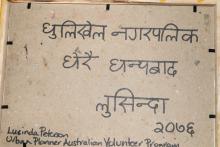 धुलिखेल नगरपालिक
धेरै धन्यबाद
लुसिन्दा
२०७६
Lucinda Peterson
Urban Planner Australian Volunteer Program